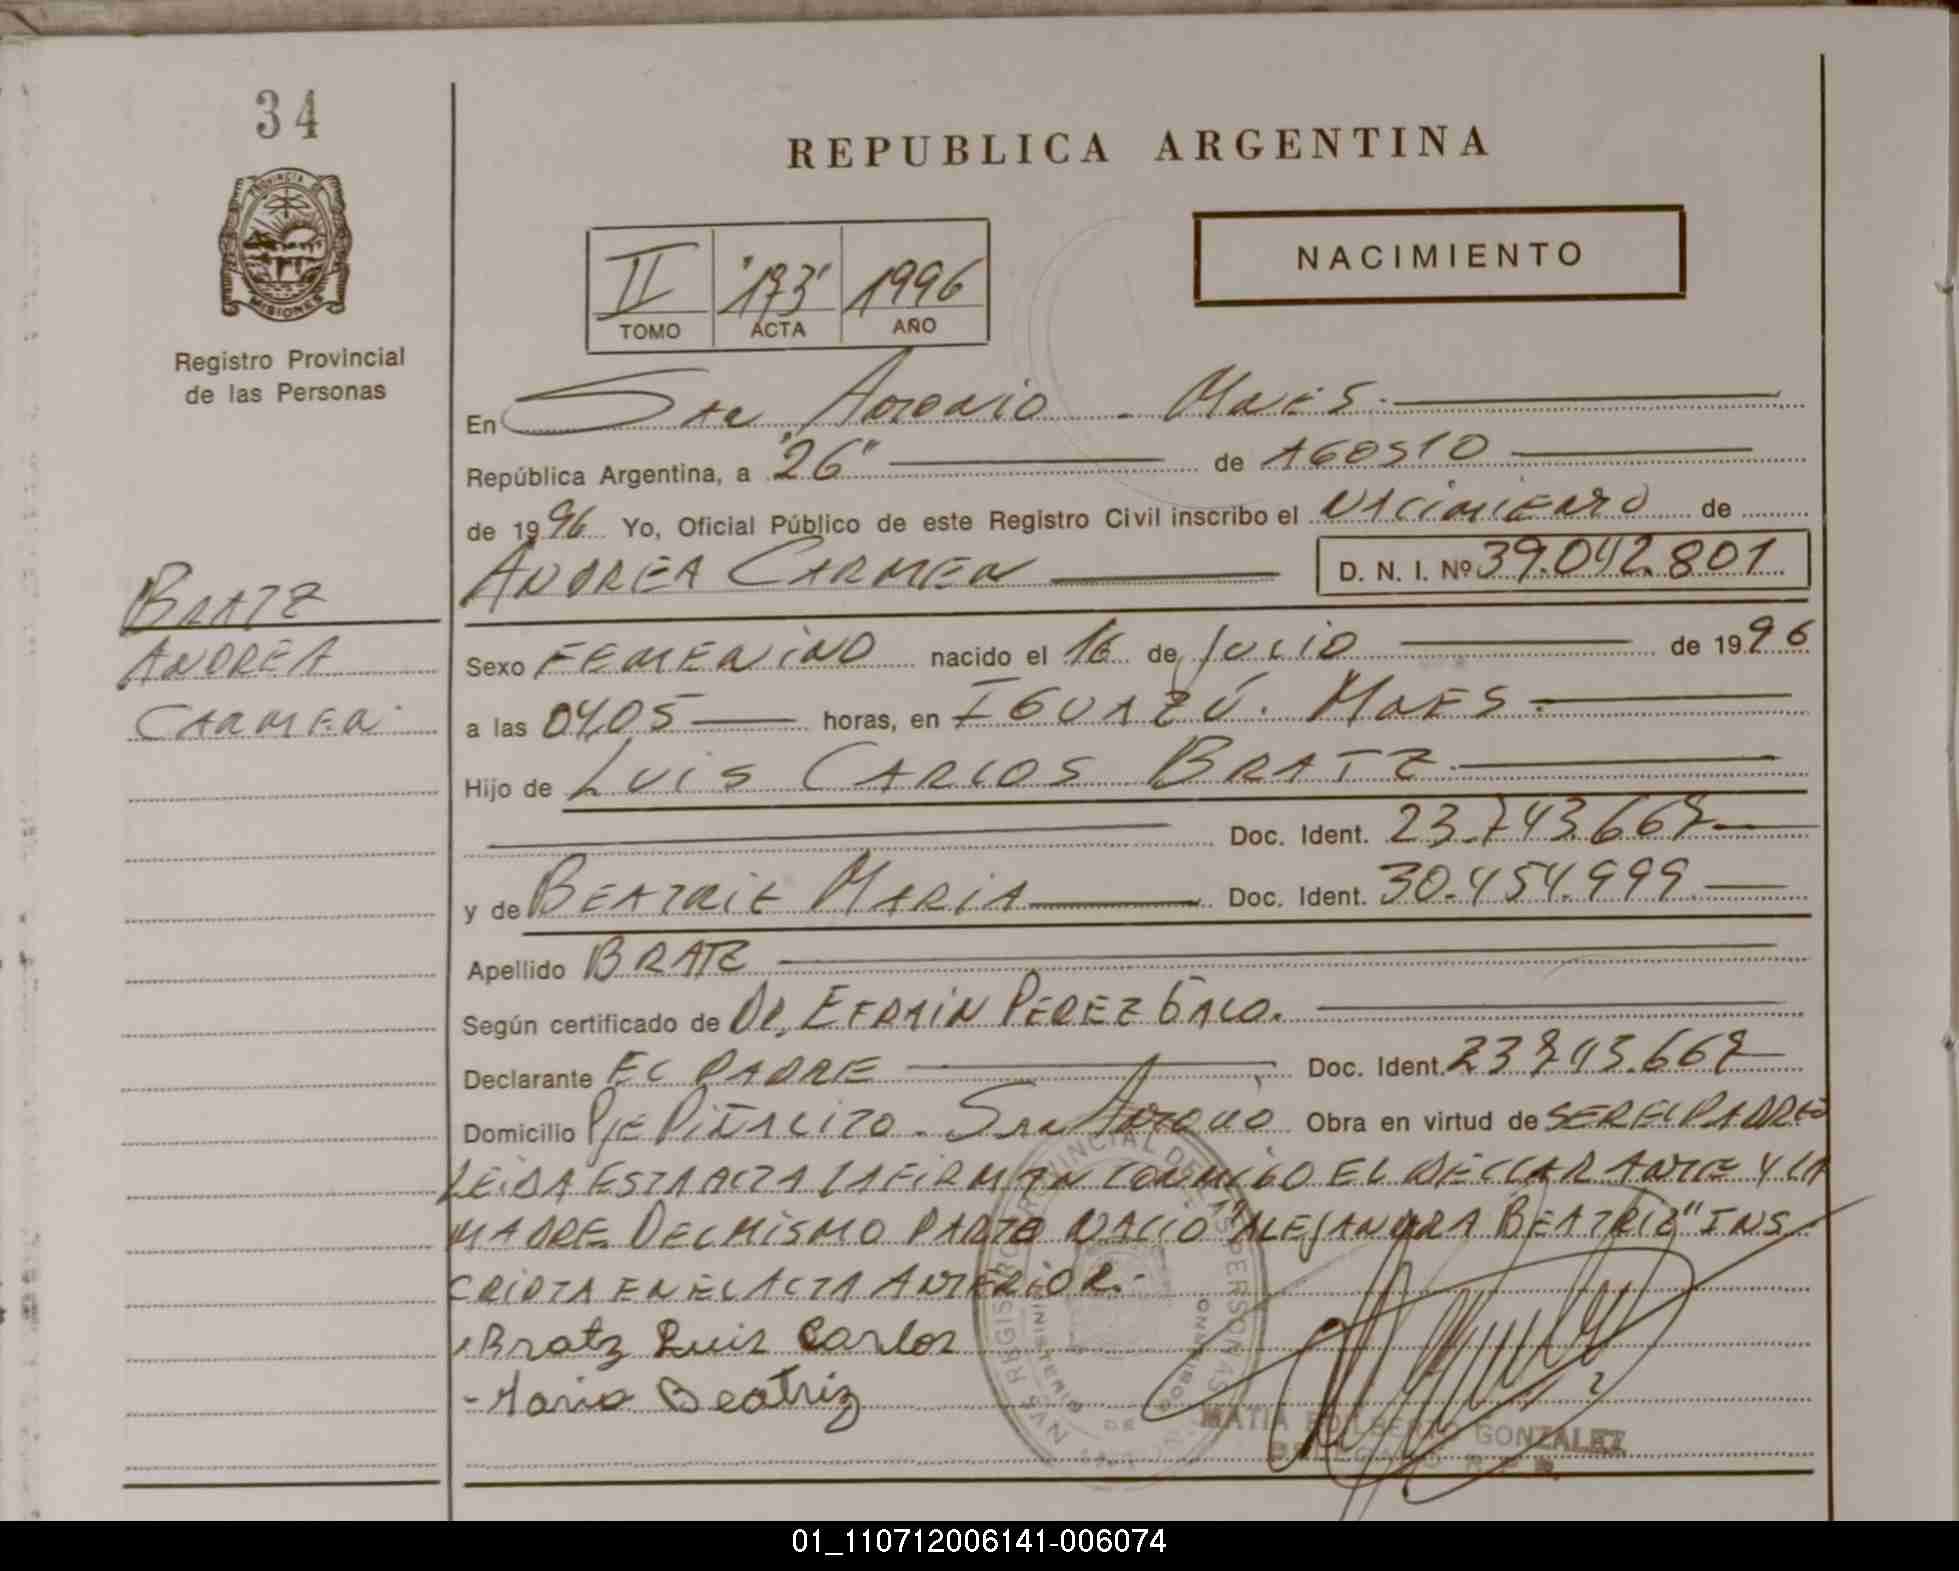 34
PROVINCIA DE
MISIONES
Registro Provincial
de las Personas
REPUBLICA ARGENTINA
NACIMIENTO
II "173" 1996
TOMO ACTA AÑO
En San Antonio - Mnes.
República Argentina, a "26" de AGOSTO
de 1996 Yo, Oficial Público de este Registro Civil inscribo el NACIMIENTO de
ANDREA CARMEN D. N. I. Nº 39.042.801
BRATZ
ANDREA
CARMEN
Sexo FEMENINO nacido el 16 de JULIO de 1996
a las 04,05 horas, en IGUAZÚ. MNES
Hijo de LUIS CARLOS BRATZ
Doc. Ident. 23.743.667
y de BEATRIZ MARIA Doc. Ident. 30.454.999
Apellido BRATZ
Según certificado de Dr. EFRAIN PEREZ GALO.
Declarante EL PADRE Doc. Ident. 23.743.667
Domicilio Pje PIÑALITO - San ANTONIO Obra en virtud de SER EL PADRE
LEIDA ESTA ACTA LA FIRMAN CONMIGO EL DECLARANTE Y LA
MADRE. DEL MISMO PARTO NACIO "ALEJANDRA BEATRIZ" INS
CRIPTA EN EL ACTA ANTERIOR.-
Bratz Luis Carlos
- Maria Beatriz
REGISTRO PROVINCIAL DE LAS PERSONAS
MINISTERIO DE GOBIERNO
GONZALEZ
01_110712006141-006074